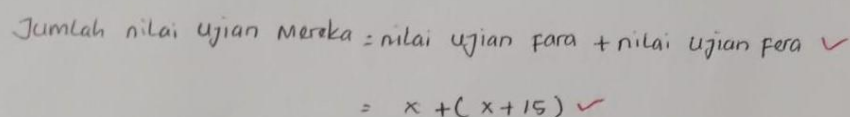 Jumlah nilai ujian Mereka = nilai ujian Fara + nilai ujian Fera ✓
= x + ( x + 15 ) ✓